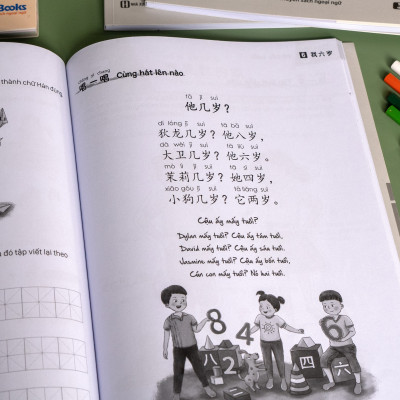 Books
thành chữ Hán đúng.
đó tập viết lại theo
6 我六岁
唱一唱 Cùng hát lên nào
tā jǐ suì
他几岁？
dí lóng jǐ suì tā bā suì
狄龙几岁？他八岁，
dà wèi jǐ suì tā liù suì
大卫几岁？他六岁。
mò lì jǐ suì tā sì suì
茉莉几岁？她四岁，
xiǎo gǒu jǐ suì tā liǎng suì
小狗几岁？它两岁。
Cậu ấy mấy tuổi?
Dylan mấy tuổi? Cậu ấy tám tuổi,
David mấy tuổi? Cậu ấy sáu tuổi.
Jasmine mấy tuổi? Cậu ấy bốn tuổi,
Cún con mấy tuổi? Nó hai tuổi.
8 4 6
八 2 四 六